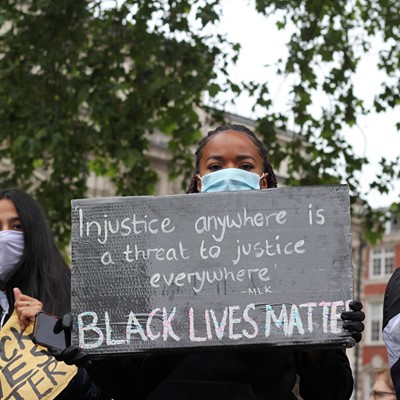 Injustice anywhere is
a threat to justice
everywhere'
--MLK
BLACK LIVES MATTER